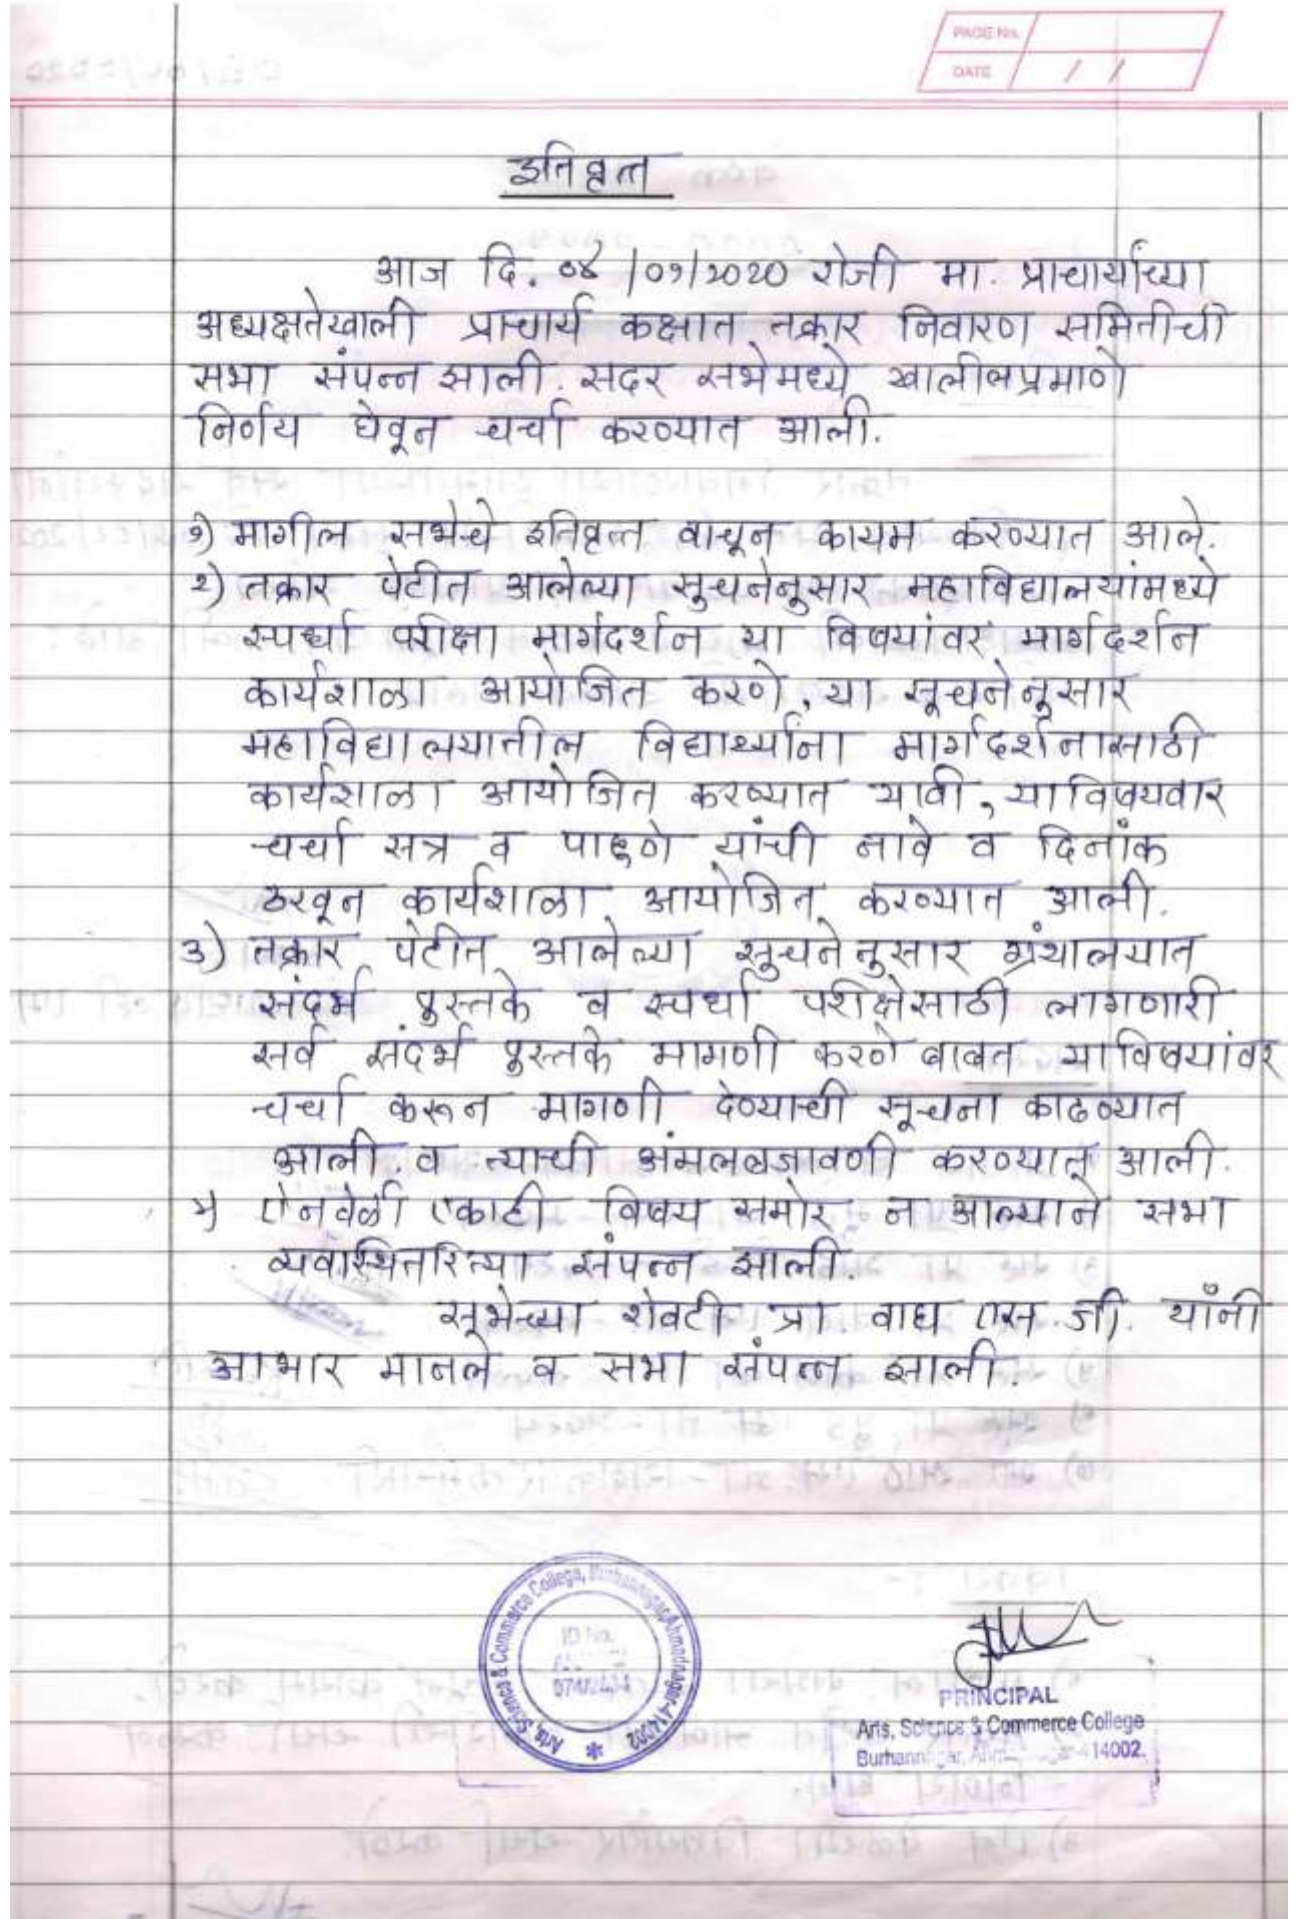 PAGE No.
DATE / /
इतिवृत्त
आज दि. ०४/०१/२०२० रोजी मा. प्राचार्यांच्या
अध्यक्षतेखाली प्राचार्य कक्षात तक्रार निवारण समितीची
सभा संपन्न झाली. सदर सभेमध्ये खालीलप्रमाणे
निर्णय घेवून चर्चा करण्यात आली.
१) मागील सभेचे इतिवृत्त वाचून कायम करण्यात आले.
२) तक्रार पेटीत आलेल्या सुचनेनुसार महाविद्यालयांमध्ये
स्पर्धा परीक्षा मार्गदर्शन या विषयांवर मार्गदर्शन
कार्यशाळा आयोजित करणे, या सूचनेनुसार
महाविद्यालयातील विद्यार्थ्यांना मार्गदर्शनासाठी
कार्यशाळा आयोजित करण्यात यावी, याविषयवार
चर्चा सत्र व पाहुणे यांची नावे व दिनांक
ठरवून कार्यशाळा आयोजित करण्यात आली.
३) तक्रार पेटीत आलेल्या सुचनेनुसार ग्रंथालयात
संदर्भ पुस्तके व स्पर्धा परीक्षेसाठी लागणारी
सर्व संदर्भ पुस्तके मागणी करणे बाबत याविषयांवर
चर्चा करून मागणी देण्याची सूचना काढण्यात
आली. व त्याची अंमलबजावणी करण्यात आली.
४) ऐनवेळी एकाही विषय समोर न आल्याने सभा
व्यवास्थितरित्या संपन्न झाली.
सभेच्या शेवटी प्रा वाघ एस. जी. यांनी
आभार मानले व सभा संपन्न झाली.
Arts, Science & Commerce College, Burhannagar, Ahmednagar-414002
ID No.
PRINCIPAL
Arts, Science & Commerce College
Burhannagar, 414002.